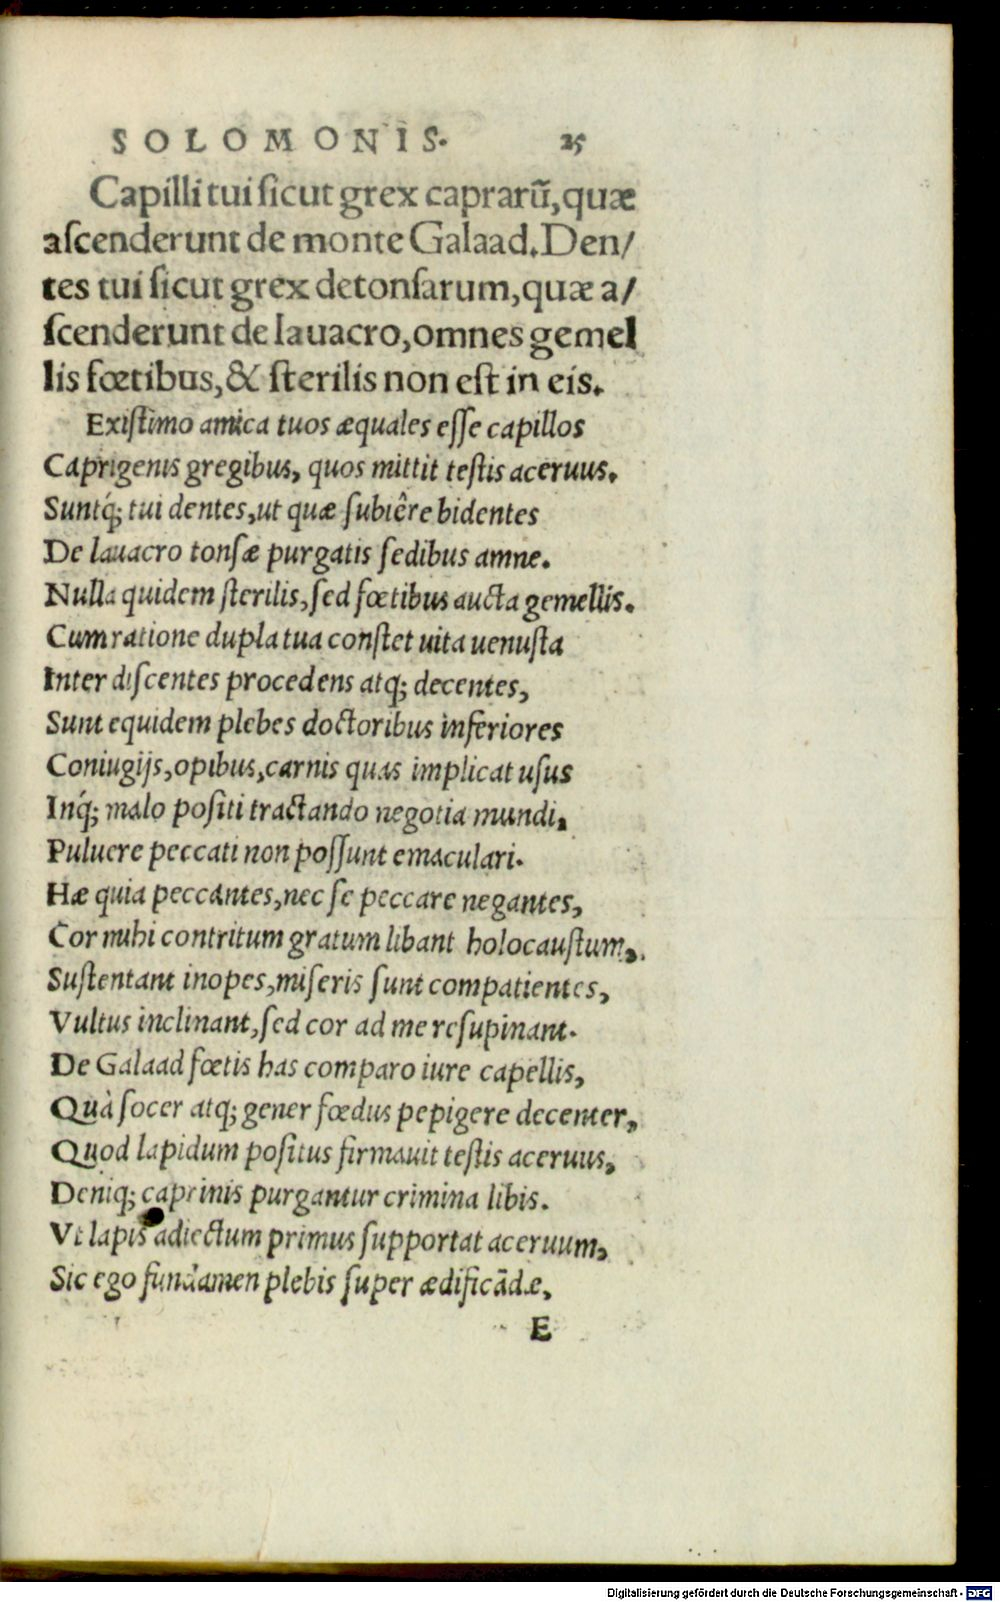 SOLOMONIS. 25
Capilli tui ſicut grex caprarũ, quæ
aſcenderunt de monte Galaad. Den/
tes tui ſicut grex detonſarum, quæ a/
ſcenderunt de lauacro, omnes gemel
lis fœtibus, & ſterilis non eſt in eis.
Exiſtimo amica tuos æquales eſſe capillos
Caprigenis gregibus, quos mittit teſtis aceruus.
Suntq́; tui dentes, ut quæ ſubiêre bidentes
De lauacro tonſæ purgatis ſedibus amne.
Nulla quidem ſterilis, ſed fœtibus aucta gemellis.
Cum ratione dupla tua conſtet uita uenuſta
Inter diſcentes procedens atq; decentes,
Sunt equidem plebes doctoribus inferiores
Coniugijs, opibus, carnis quas implicat uſus
Inq́; malo poſiti tractando negotia mundi,
Puluere peccati non poſſunt emaculari.
Hæ quia peccantes, nec ſe peccare negantes,
Cor mihi contritum gratum libant holocauſtum,
Suſtentant inopes, miſeris ſunt compatientes,
Vultus inclinant, ſed cor ad me reſupinant.
De Galaad fœtis has comparo iure capellis,
Quà ſocer atq; gener fœdus pepigere decenter,
Quod lapidum poſitus firmauit teſtis aceruus,
Deniq; caprinis purgantur crimina libis.
Vt lapis adiectum primus ſupportat aceruum,
Sic ego fundamen plebis ſuper ædificãdæ,
E
Digitalisierung gefördert durch die Deutsche Forschungsgemeinschaft - DFG